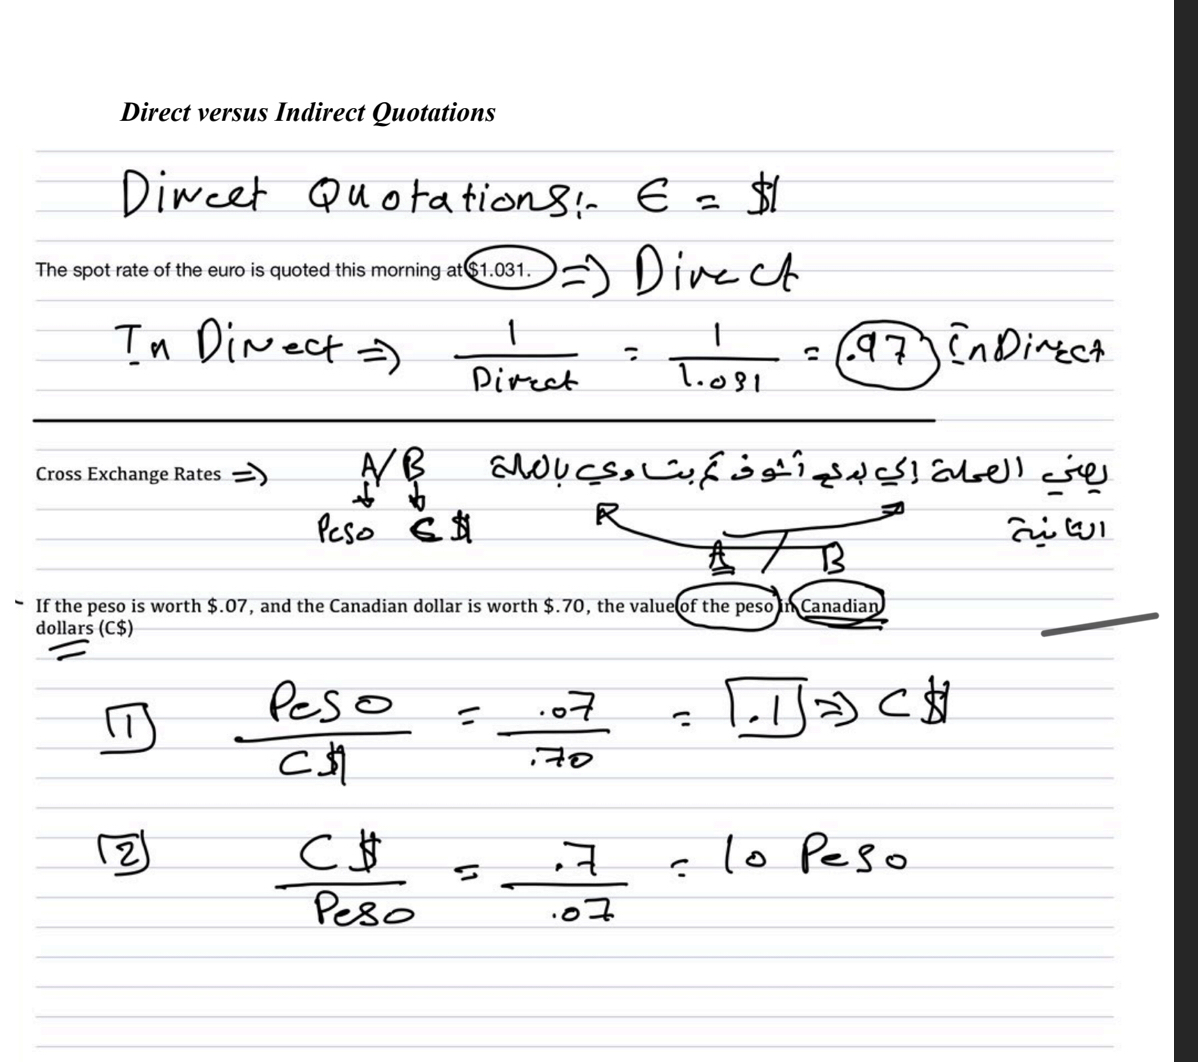 Direct versus Indirect Quotations
Direct Quotations:- € = $1
The spot rate of the euro is quoted this morning at $1.031. => Direct
InDirect => 1 / Direct = 1 / 1.031 = .97 inDirect
Cross Exchange Rates => A/B يعني العملة إلي بدي أشوف كم بتساوي بالعملة
Peso C$ الثانية
A / B
If the peso is worth $.07, and the Canadian dollar is worth $.70, the value of the peso in Canadian
dollars (C$)
1 Peso / C$ = .07 / .70 = .1 => C$
2 C$ / Peso = .7 / .07 = 10 Peso